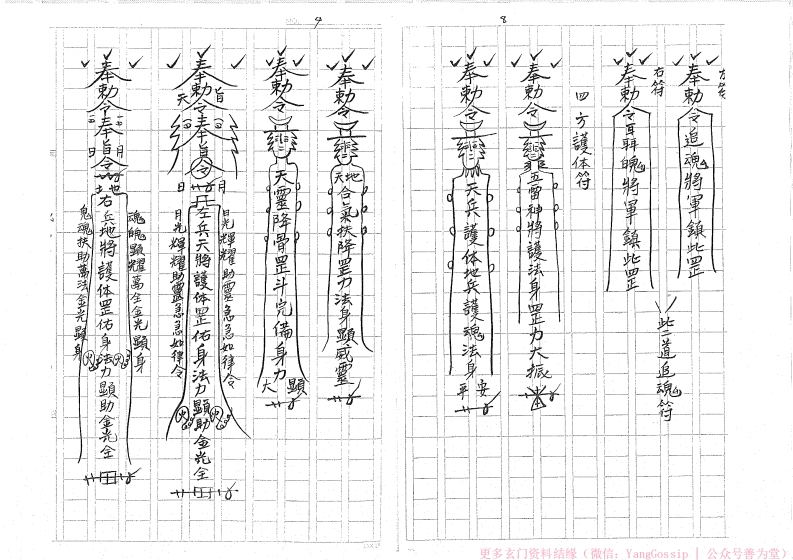 8
左符
奉勅令追魂將軍鎮此罡
右符
奉勅令聶魄將軍鎮此罡
此二道追魂符
四方護体符
奉勅令
五雷神將護法身罡力大振
奉勅令
天兵護体地兵護魂法身
平安
9
奉勅令
天地
合氣扶降罡力法身顯威靈
奉勅令
天靈降骨罡斗完備身力
大顯
奉勅令
天旨
奉旨令
日月
左兵天將護体罡佑身法力顯助金光全
日光輝耀助靈急急如律令
月光輝耀助靈急急如律令
火火
奉勅令
奉旨令
日月
右兵地將護体罡佑身法力顯助金光全
魂魄顯耀萬全金光顯身
鬼魂扶助萬法金光顯身
火火
更多玄门资料结缘（微信：YangGossip | 公众号善为堂）